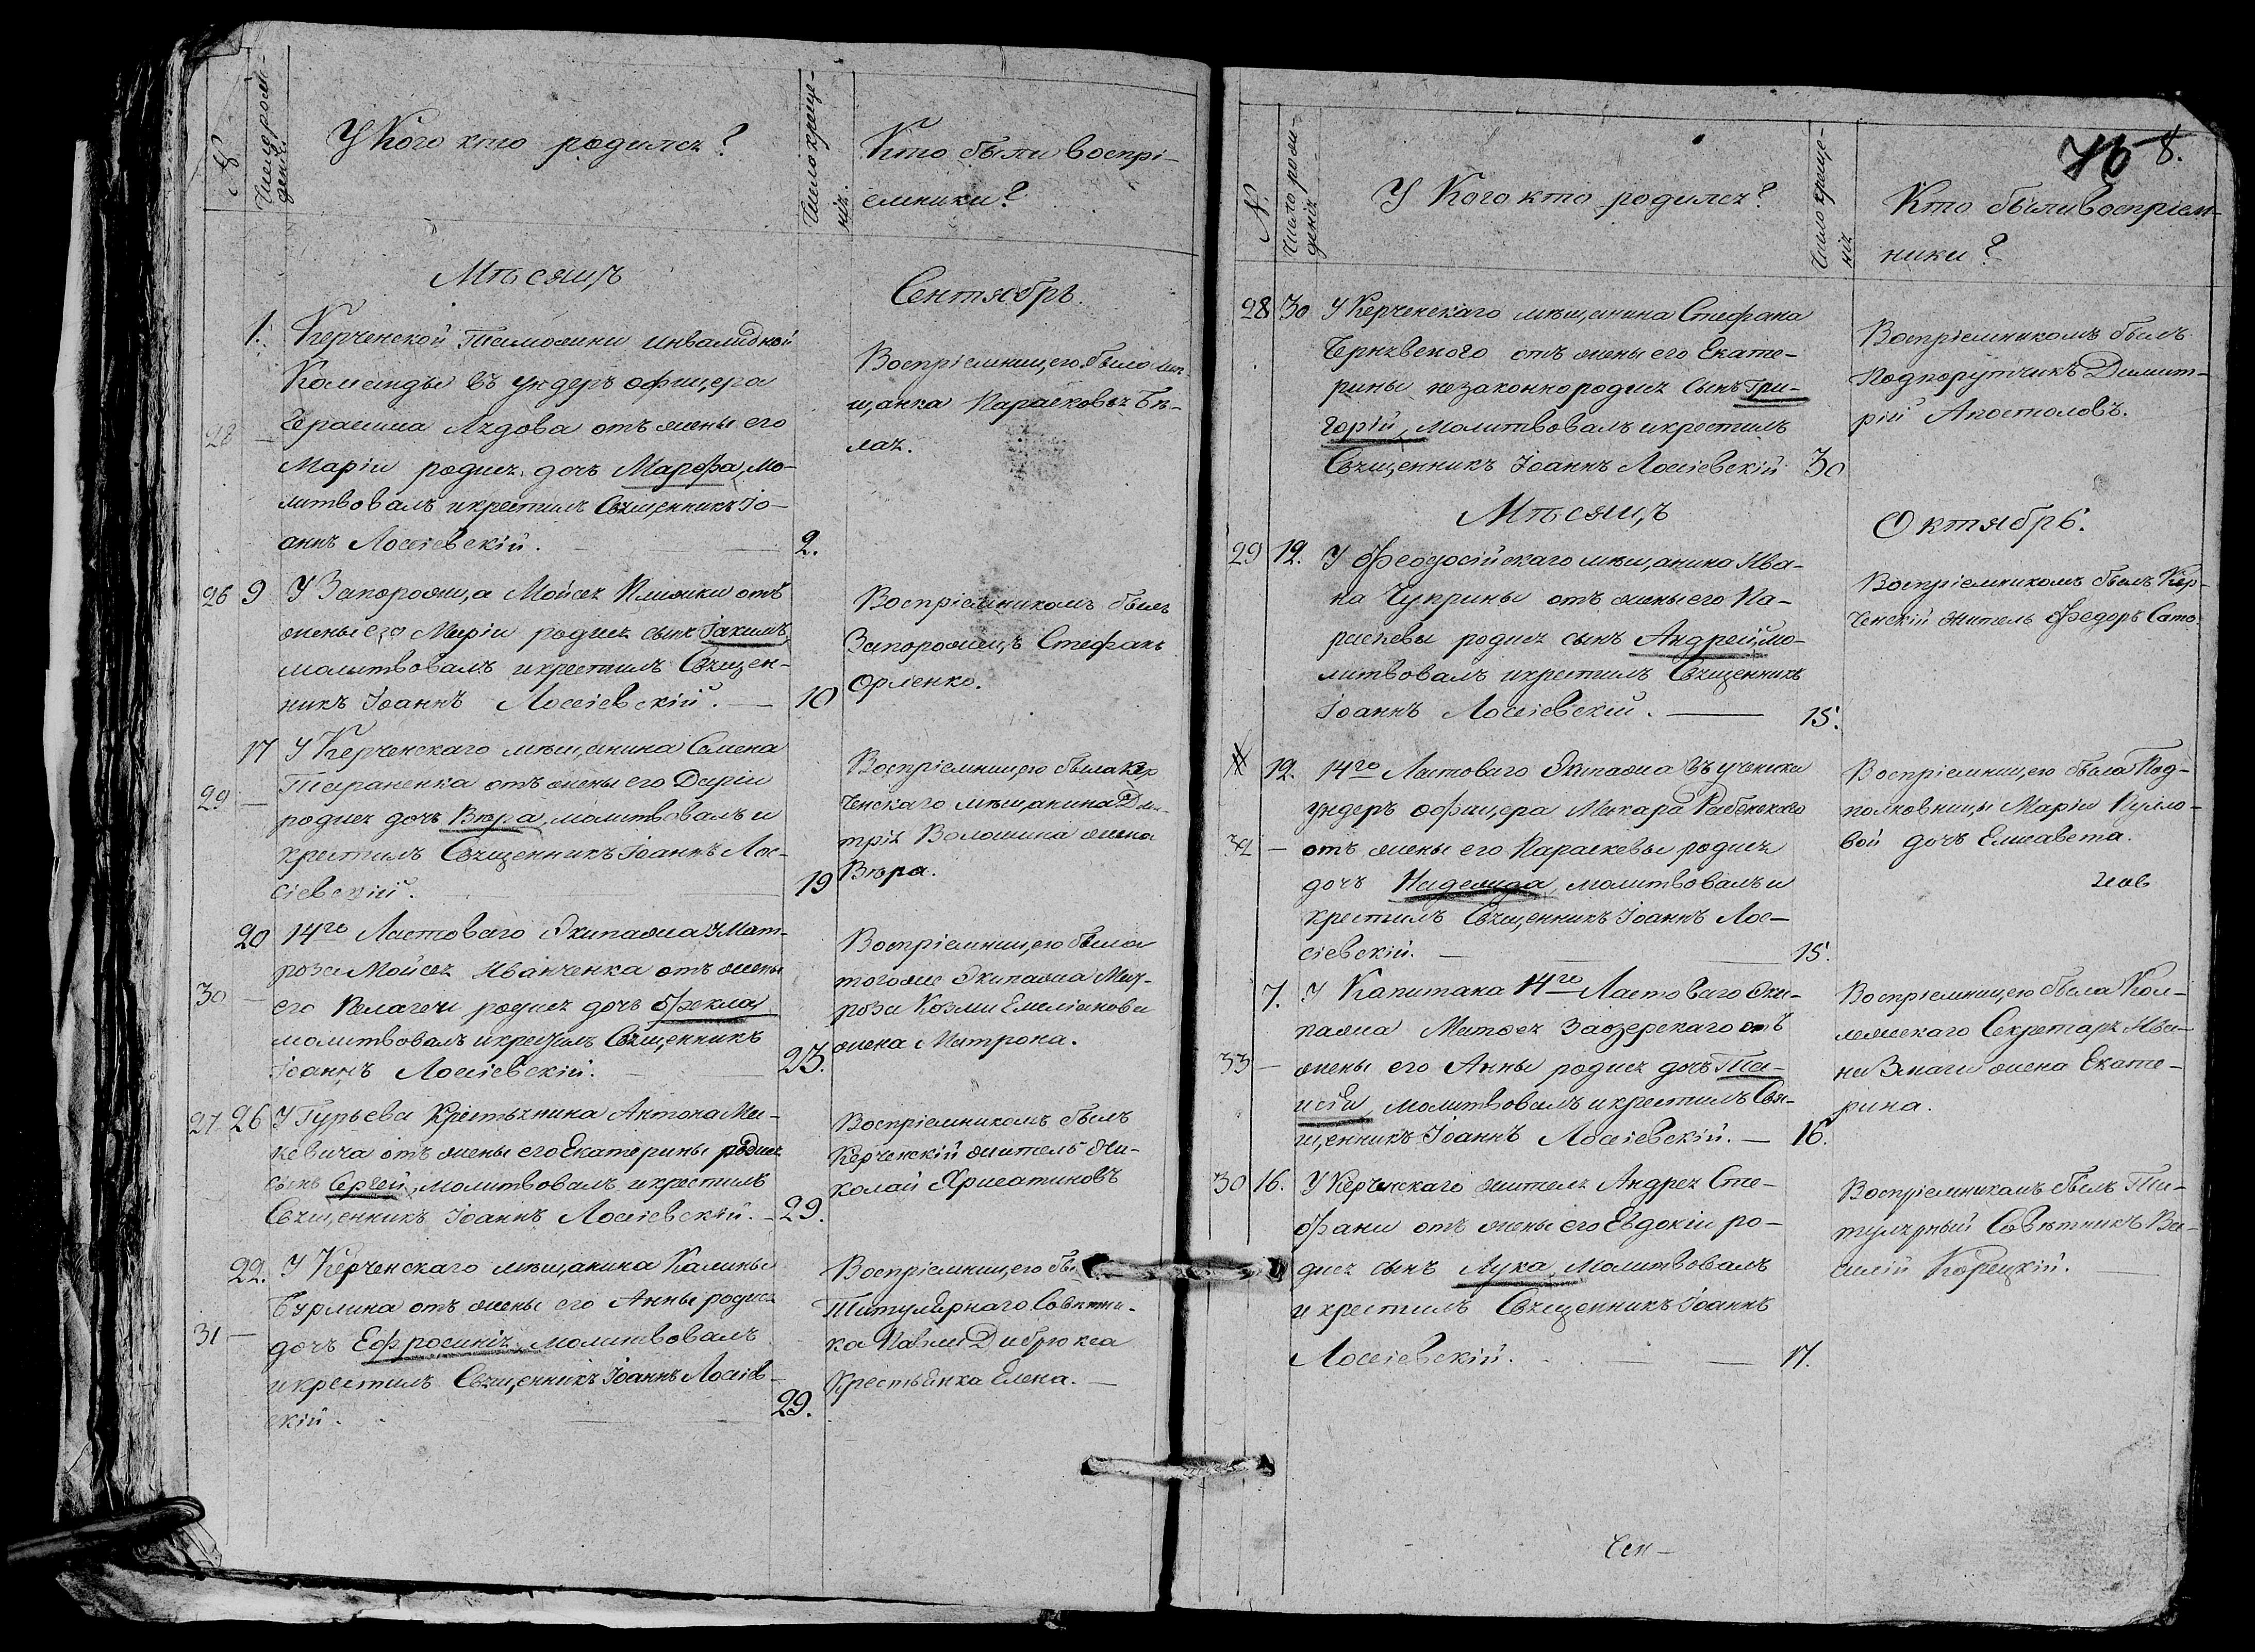 №
Число рож-
денія
У Кого кто родился?
Число креще-
нія.
Кто были воспрі-
емники?
Мѣсяцъ
Сентябрь.
1. Керченской Таможни инвалидной
Команды въ ундеръ офицера
28 — Герасима Лядова отъ жены его
Маріи родися дочъ Марфа, мо-
литвовалъ и крестилъ Священникъ Іо-
аннъ Лосіевскій. — 2.
Воспріемницею была мѣ-
щанка Парасковья Бѣ-
лая.
26 9 У Запорожца Мойсея Клижки отъ
жены его Маріи родися сынъ Іакимъ,
молитвовалъ и крестилъ Священ-
никъ Іоаннъ Лосіевскій. — 10
Воспріемникомъ былъ
Запорожецъ Стефанъ
Орленко.
17 У Керченскаго мѣщанина Семена
29 — Тараненка отъ жены его Даріи
родися дочъ Вѣра, молитвовалъ и
крестилъ Священникъ Іоаннъ Лос-
сіевскій. — 19
Воспріемницею была Кер
ченскаго мѣщанина Дми-
трія Волошина жена
Вѣра.
20 14го Ластоваго Экипажа У Мат-
роза Мойсея Иванченка отъ жены
30 — его Пелагеи родися дочъ Фекла,
молитвовалъ и крестилъ Священникъ
Іоаннъ Лосіевскій. — 23.
Воспріемницею была
тогоже Экипажа Мат-
роза Козми Емеліанова
жена Матрона.
27 26 У Гурьева Крестьянина Антона Ма-
кевича отъ жены его Екатерины родися
сынъ Сергей, молитвовалъ и крестилъ
Священникъ Іоаннъ Лосіевскій. — 29.
Воспріемникомъ былъ
Керченскій житель Ни-
колай Хрисатиновъ
22. У Керченскаго мѣщанина Калины
Бурлина отъ жены его Анны родися
31 — дочъ Ефросинія, молитвовалъ
и крестилъ Священникъ Іоаннъ Лосіев-
скій. — 29.
Воспріемницею бы
Титулярнаго Совѣтни-
ка Павла Дибрюкса
Крестьянка Елена. —
76 8.
№
Число рож-
денія
У Кого кто родился?
Число креще-
нія
Кто были воспріем-
ники?
28 30 У Керченскаго мѣщанина Стефана
Чернявского отъ жены его Екате-
рины незаконнородися сынъ Гри-
горій, молитвовалъ и крестилъ
Священникъ Іоаннъ Лосіевскій 30
Воспріемникомъ былъ
Подпорутчикъ Димит-
рій Апостоловъ.
Мѣсяцъ
Октябрь.
29 12. У Феодосійскаго мѣщанина Ива-
на Чуприны отъ жены его Па-
раскевы родися сынъ Андрей, мо-
литвовалъ и крестилъ Священникъ
Іоаннъ Лосіевскій. — 15.
Воспріемникомъ былъ Кер-
ченскій житель Федоръ Сато
12. 14го Ластоваго Экипажа въ ученика
ундеръ офицера Макара Рабенскаго
32 — отъ жены его Параскевы родися
дочъ Надежда, молитвовалъ и
крестилъ Священникъ Іоаннъ Лос-
сіевскій. — 15.
Воспріемницею была Под-
полковницы Маріи
вой дочъ Елисавета.
7. У Капитана 14го Ластоваго Эки-
пажа Матфея Заозерскаго отъ
33 — жены его Анны родися дочъ Та-
исія, молитвовалъ и крестилъ Свя-
щенникъ Іоаннъ Лосіевскій. — 16.
Воспріемницею была Кол-
лежскаго Секретаря Ива-
на жена Екате-
рина.
30 16. У Керченскаго жителя Андрея Сте-
фани отъ жены его Евдокіи ро-
дися сынъ Лука, молитвовалъ
и крестилъ Священникъ Іоаннъ
Лосіевскій. — 17.
Воспріемникомъ былъ Ти-
тулярный Совѣтникъ Ва-
силій Корецкій.